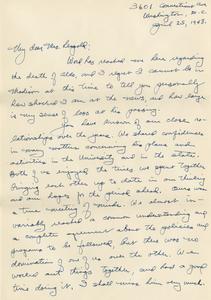 3601 Connecticut Ave
Washington, D.C.
April 25, 1948.
My dear Mrs. Leopold:
Word has reached me here regarding
the death of Aldo, and I regret I cannot be in
Madison at this time to tell you personally
how shocked I am at the news, and how large
is my sense of loss at his passing.
You have known of our close re-
lationships over the years. We shared confidences
in many matters concerning his plans and
activities in the University and in the state.
Both of us enjoyed the times we spent together
bringing each other up to date on our thinking
and our hopes for the period ahead. Ours was
a true meeting of minds. We almost in-
variably reached a common understanding and
a complete agreement about the policies and
programs to be followed. But this was no
domination of one of us over the other. We
worked out things together, and had a good
time doing it. I shall miss him very much.